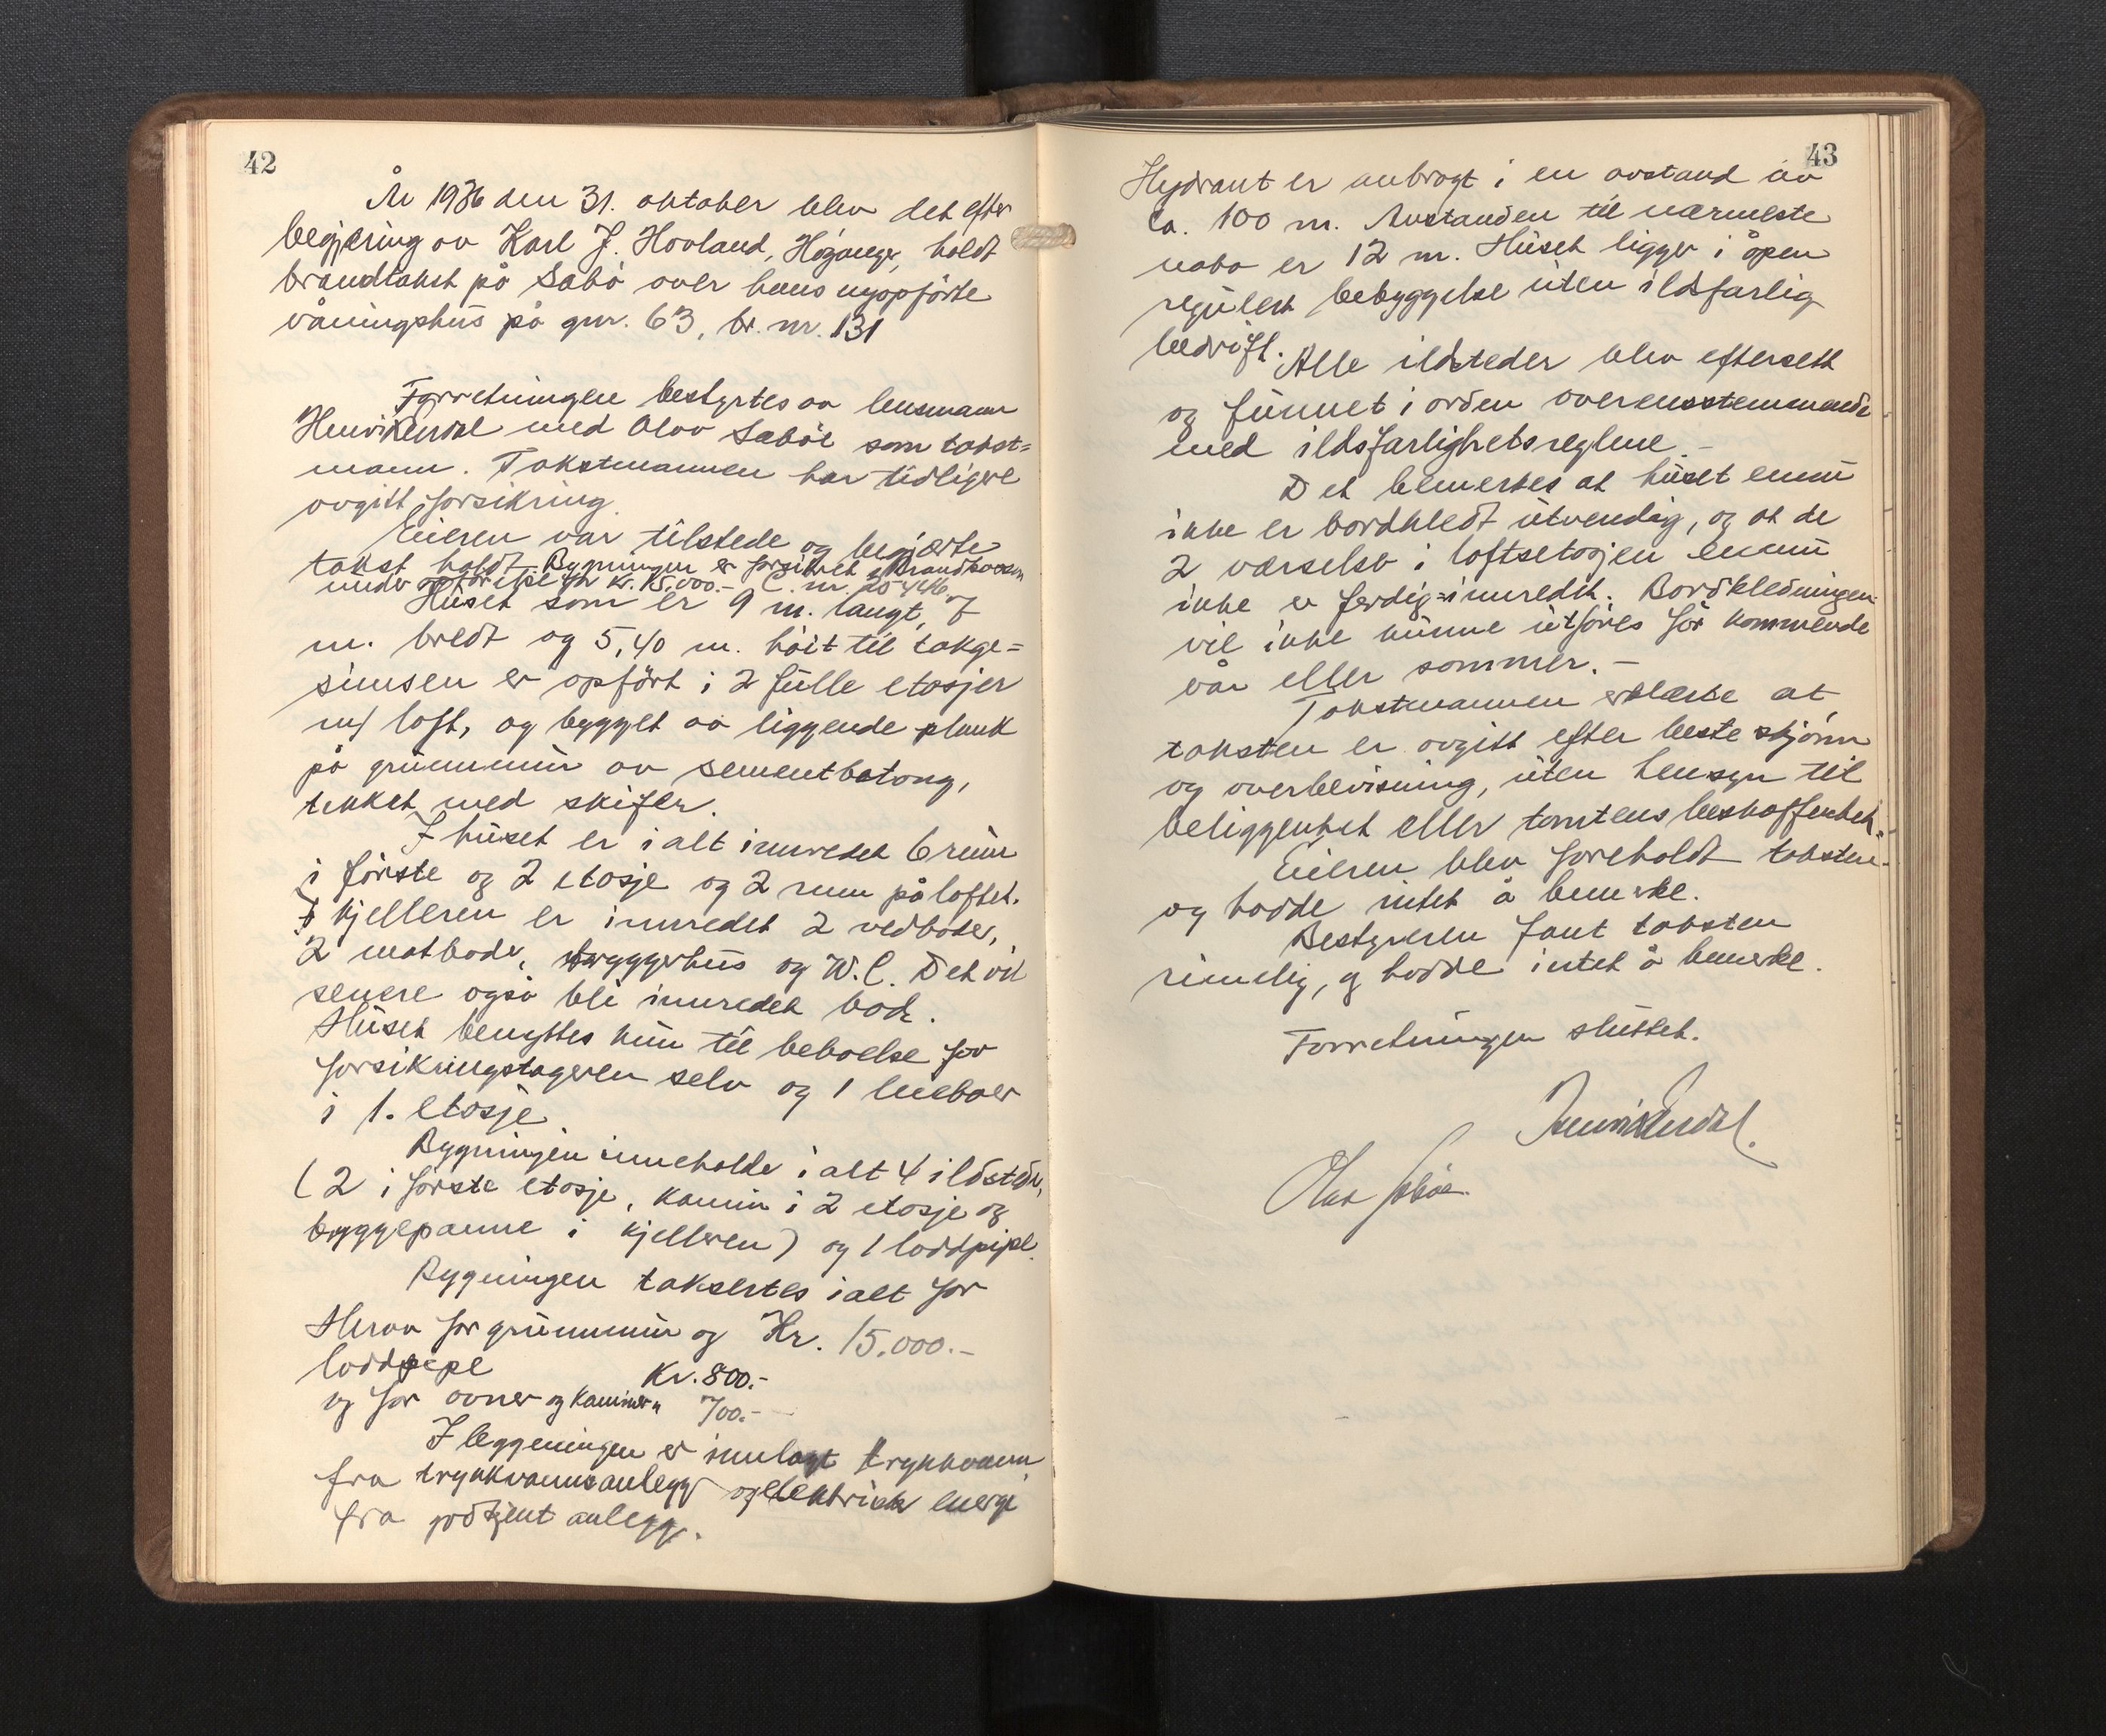 42
År 1936 den 31. oktober blev det efter
begjæring av Karl J. Hovland, Høyanger, holdt
brandtakst på Sæbø over hans nyopførte
våningshus på gnr. 63, br. nr. 131
Forretningen bestyrtes av lensmann
Henrik Erdal med Olav Sæbøe som takst=
mann. Takstmannen har tidligere
avgitt forsikring.
Eieren var tilstede og begjærte
takst holdt. Bygningen er forsikret i Brandkassen
under opførelse for kr. 15.000.- C. nr. 254446
Huset som er 9 m. langt, 7
m. bredt og 5,40 m. høit til takge=
simsen er opført i 2 fulle etasjer
m/ loft, og bygget av liggende plank
på grunnmur av sementbetong,
tekket med skifer.
I huset er i alt innredet 6 rum
i første og 2 etasje og 2 rum på loftet.
I kjelleren er innredet 2 vedboder,
2 matboder, bryggerhus og W.C. Det vil
senere også bli innredet bad.
Huset benyttes kun til beboelse for
forsikringstageren selv og 1 leieboer
i 1. etasje
Bygningen inneholder i alt 4 ildsteder,
(2 i første etasje, kamin i 2 etasje og
bryggepanne i kjelleren) og 1 loddpipe.
Bygningen takseres i alt for
Herav for grunnmur og Kr. 15.000.-
loddpipe Kr. 800.-
og for ovner og kaminer " 700.-
I byggningen er innlagt trykkvann
fra trykkvannsanlegg og elektrisk energi
fra godkjent anlegg.
43
Hydrant er anbragt i en avstand av
ca. 100 m. Avstanden til nærmeste
nabo er 12 m. Huset ligger i åpen
regulert bebyggelse uten ildsfarlig
bedrift.
Alle ildsteder blev eftersett
og funnet i orden overensstemmende
med ildsfarlighetsreglene.-
Det bemerkes at huset ennu
ikke er bordkledt utvendig, og at de
2 værelser i loftsetasjen ennu
ikke er ferdig=innredet. Bordkledningen
vil ikke kunne utføres før kommende
vår eller sommer.-
Takstmannen erklærte at
taksten er avgitt efter beste skjønn
og overbevisning, uten hensyn til
beliggenhet eller tomtens beskaffenhet.
Eieren blev foreholdt taksten
og hadde intet å bemerke.
Bestyreren fant taksten
rimelig, og hadde intet å bemerke.
Forretningen sluttet.
Henrik Erdal.
Olav Sæbøe.